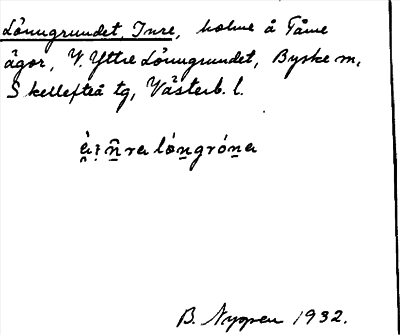 Lönngrundet, Inre, holme å Tåme
ägor, V. Yttre Lönngrundet, Byske sn,
Skellefteå tg, Västerb. l.
B. Nygren 1932.